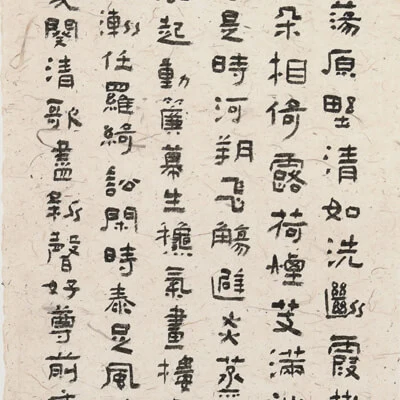 蕩原野清如洗斷霞
朵相倚露荷煙芰滿
是時河朔飛觴避炎蒸
起動簾幕生穐氣畫樓
漸任羅綺訟閑時泰足風
闋清歌盡新聲好尊前